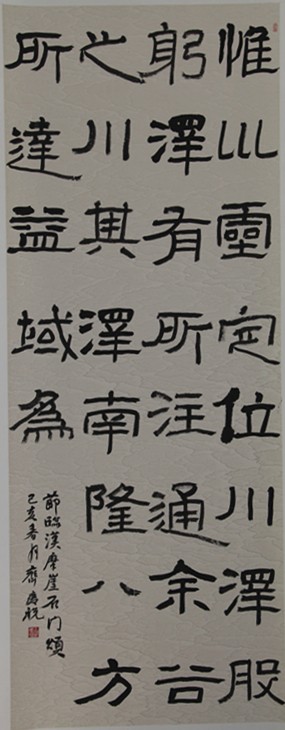 惟巛靈定位川澤股
躬澤有所注通余谷
之川其澤南隆八方
所達益域為
節臨漢摩崖石門頌
己亥春月齊